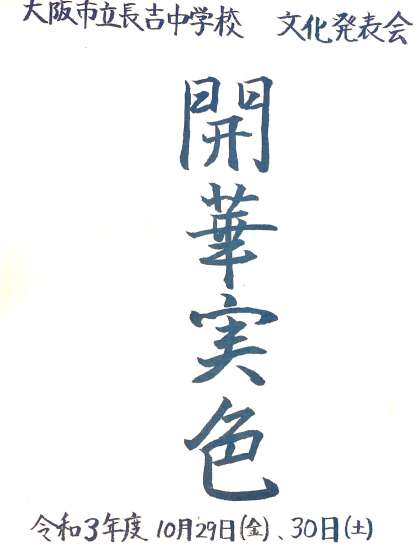 大阪市立長吉中学校　文化発表会
開華実色
令和3年度 10月29日(金)、30日(土)